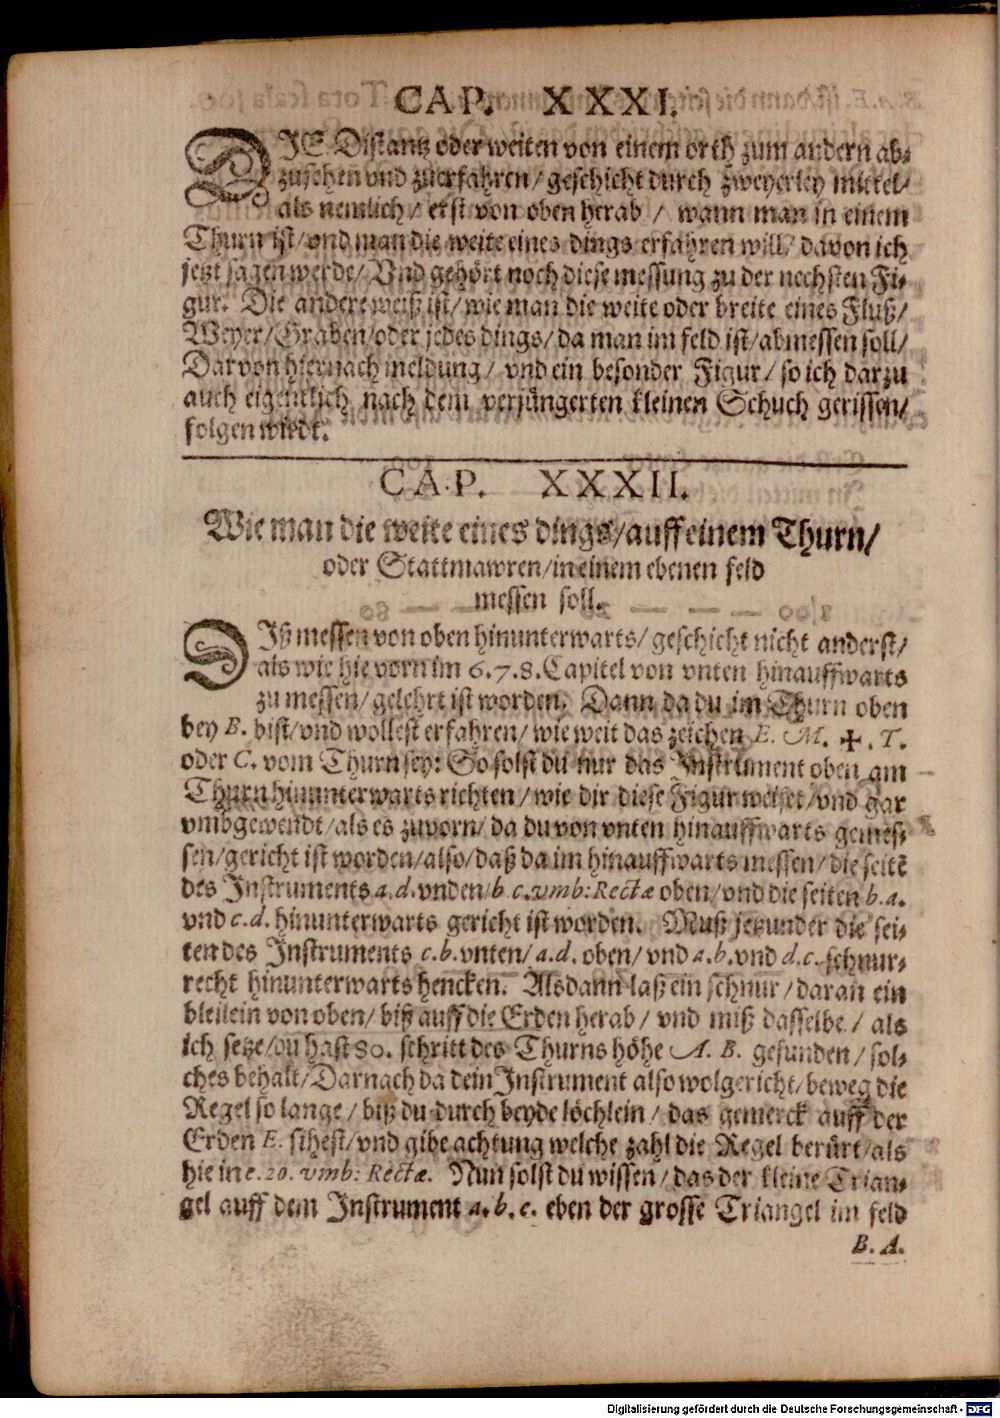 CAP. XXXI.
DIE Distantz oder weiten von einem orth zum andern ab-
zusehen vnd zuerfahren/ geschicht durch zweyerley mittel/
als nemlich/ erst von oben herab / wann man in einem
Thurn ist/ vnd man die weite eines dings erfahren will/ davon ich
jetzt sagen werde/ Vnd gehört noch diese messung zu der nechsten Fi-
gur. Die andere weiß ist/ wie man die weite oder breite eines Fluß/
Weyer/ Graben/ oder jedes dings/ da man im feld ist/ abmessen soll/
Darvon hiernach meldung/ vnd ein besonder Figur/ so ich darzu
auch eigentlich nach dem verjüngerten kleinen Schuch gerissen/
folgen wirdt.
CAP. XXXII.
Wie man die weite eines dings/ auff einem Thurn/
oder Stattmawren/ in einem ebenen feld
messen soll.
DIß messen von oben hinunterwarts/ geschicht nicht anderst/
als wie hie vorn im 6.7.8. Capitel von vnten hinauffwarts
zu messen/ gelehrt ist worden. Dann da du im Thurn oben
bey B. bist/ vnd wollest erfahren/ wie weit das zeichen E. M. ✠. T.
oder C. vom Thurn sey: So solst du nur das Instrument oben am
Thurn hinunterwarts richten/ wie dir diese Figur weiset/ vnd gar
vmbgewendt/ als es zuvorn/ da du von vnten hinauffwarts gemes-
sen/ gericht ist worden/ also/ daß da im hinauffwarts messen/ die seitē
des Instruments a.d. vnden/ b c. vmb: Rectæ oben/ vnd die seiten b.a.
vnd c.d. hinunterwarts gericht ist worden. Muß jetzunder die sei-
ten des Instruments c.b. vnten/ a.d. oben/ vnd a.b. vnd d.c. schnur-
recht hinunterwarts hencken. Alsdann laß ein schnur/ daran ein
bleilein von oben/ biß auff die Erden herab/ vnd miß dasselbe/ als
ich setze/ du hast 80. schritt des Thurns höhe A. B. gefunden/ sol-
ches behalt/ Darnach da dein Instrument also wolgericht/ beweg die
Regel so lange/ biß du durch beyde löchlein/ das gemerck auff der
Erden E. sihest/ vnd gibe achtung welche zahl die Regel berürt/ als
hie in e. 20. vmb: Rectæ. Nun solst du wissen/ das der kleine Trian-
gel auff dem Instrument a. b. e. eben der grosse Triangel im feld
B. A.
Digitalisierung gefördert durch die Deutsche Forschungsgemeinschaft - DFG